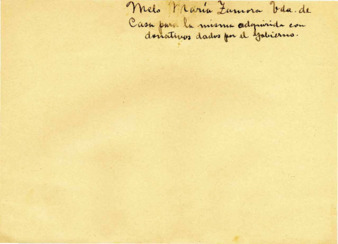 Melo María Zamora Vda. de
Casa para la misma adquirida con
donativos dados por el Gobierno.